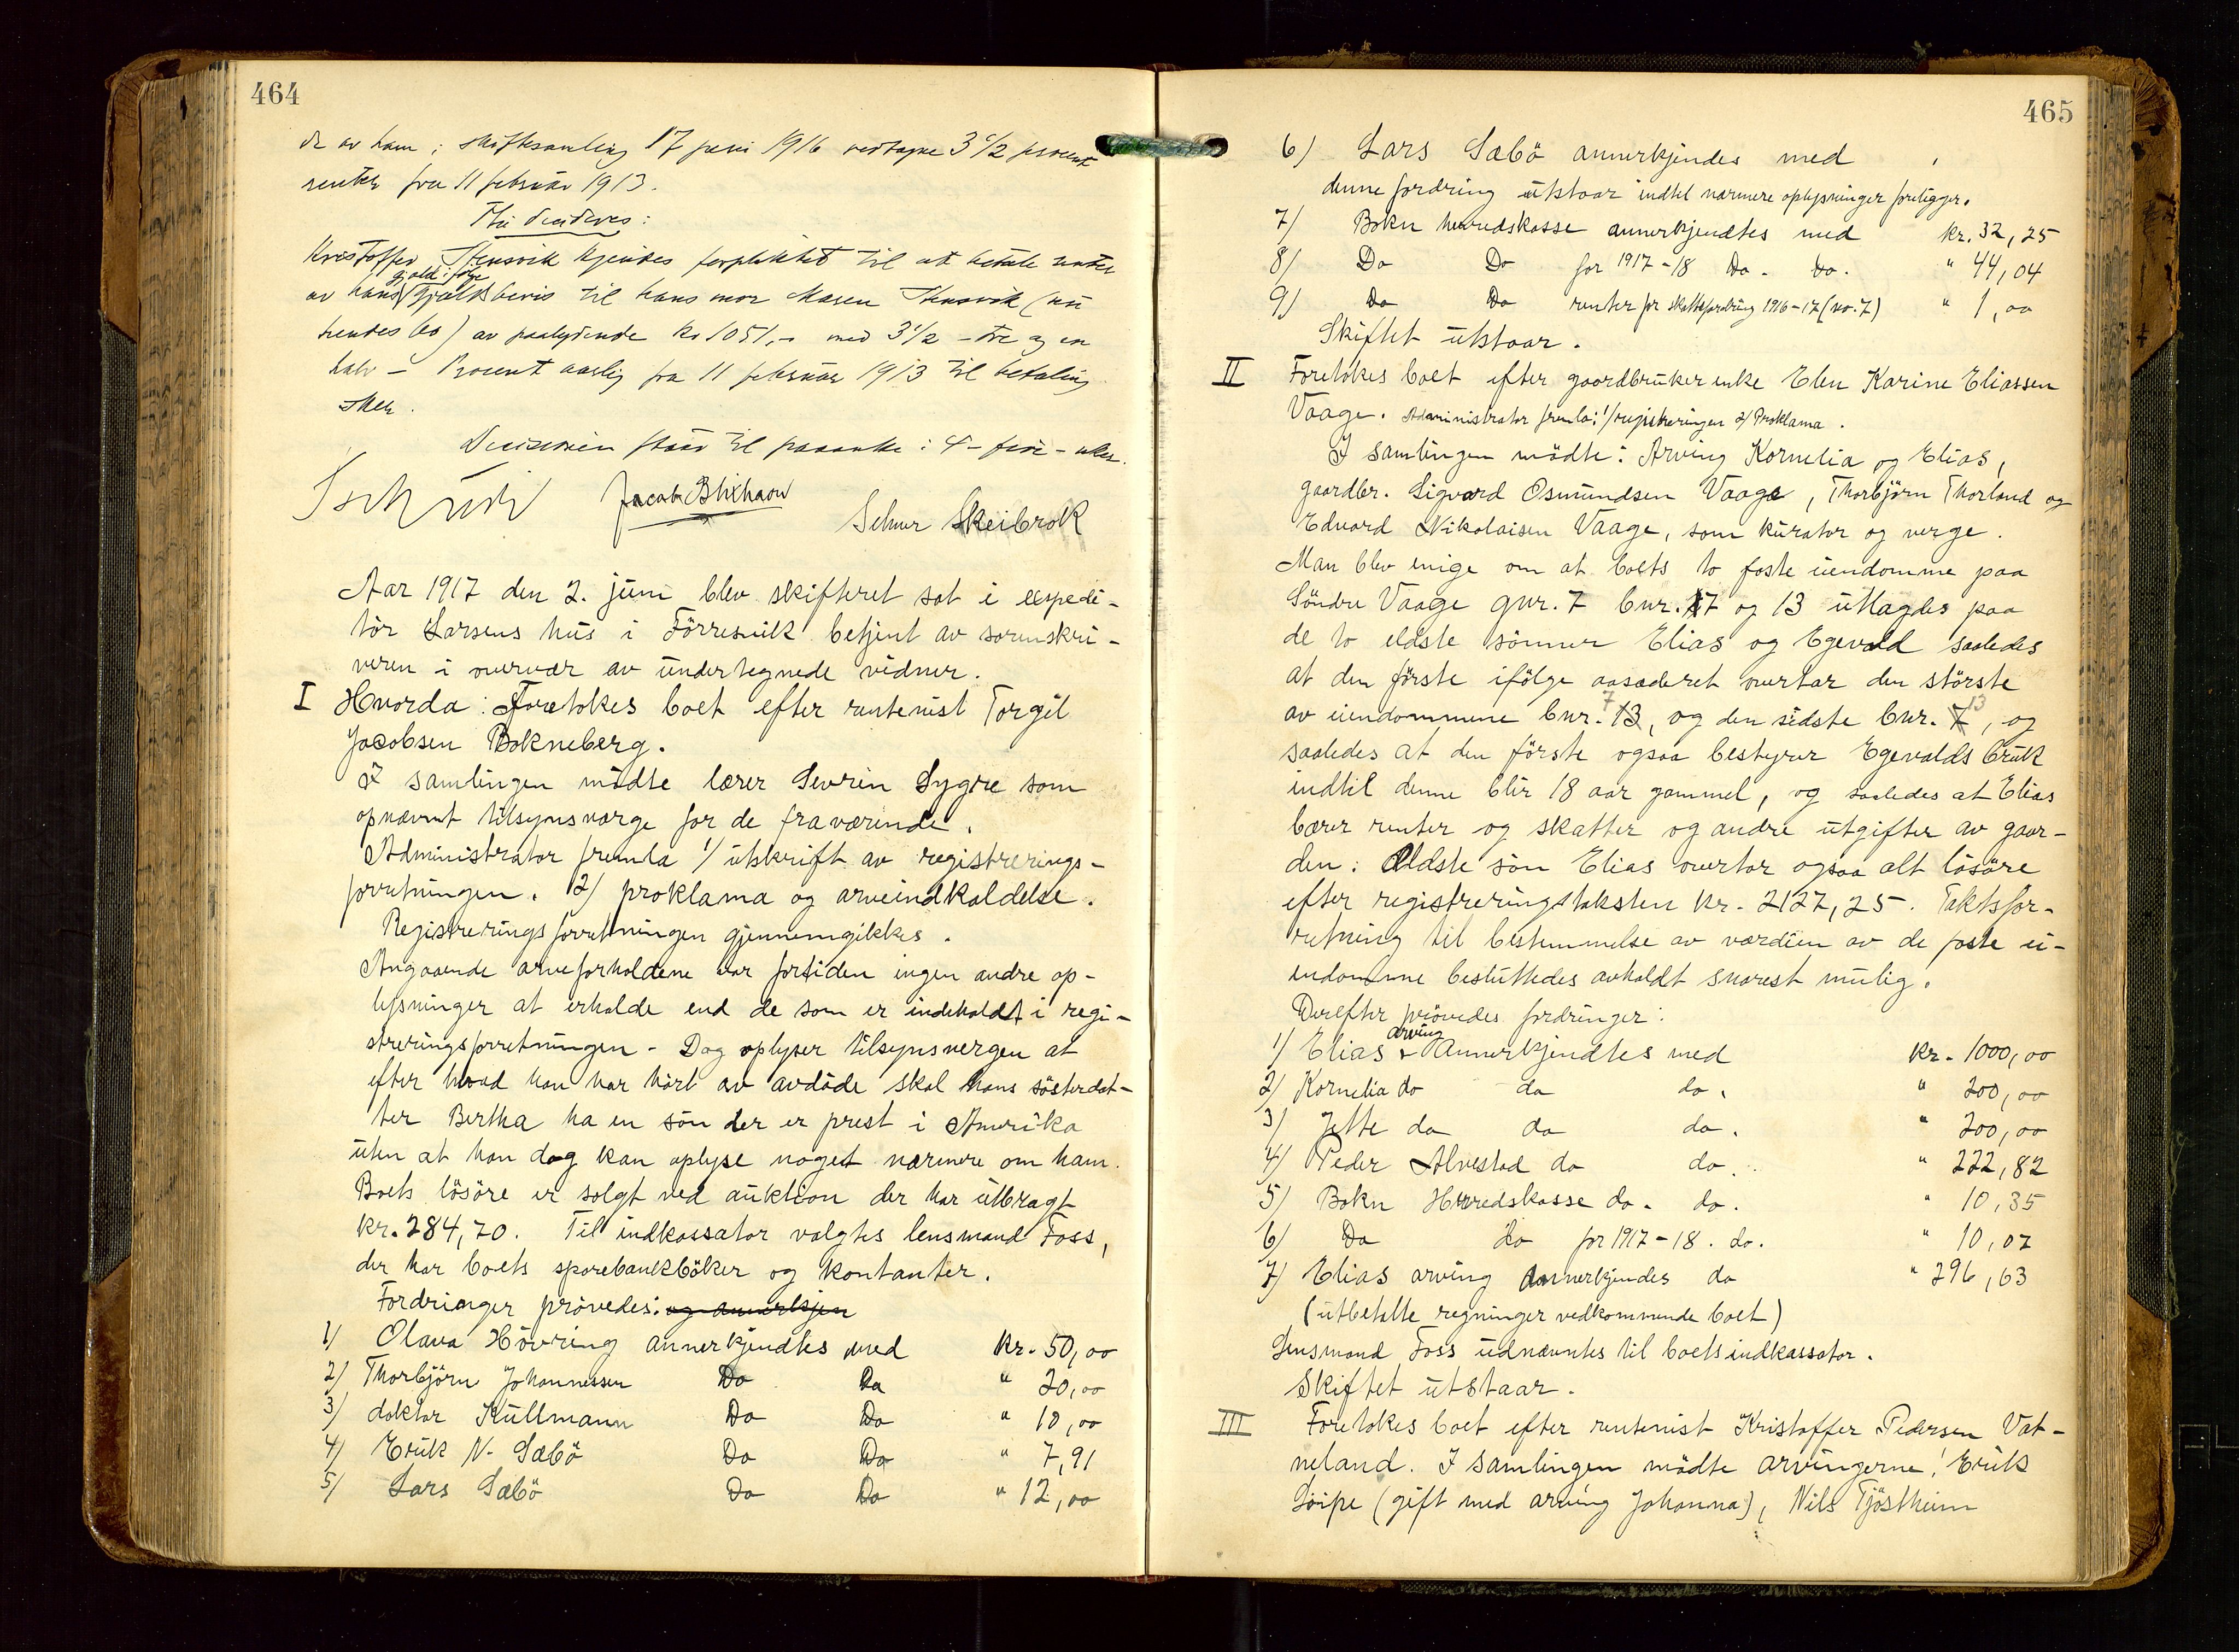 464
de av ham i skiftesamling 17 juni 1916 vedtagne 3 1/2 procent
renter fra 11 februar 1913.
Thi decideres:
Kristoffer Stensvik kjendes forpliktet til at betale renter
gjæld ifølge
av hans gjældsbevis til hans mor Maren Stensvik (nu
hendes bo) av paalydende kr 1051,- med 3 1/2 - tre og en
halv - Procent aarlig fra 11 februar 1913 til betaling
sker.
Decisionen staar til paaanke i 4 - fire - uker.
Jacob Selmer Skeibrok
Aar 1917 den 2. juni blev skifteret sat i expedi-
tör Larsens hus i Förresvik betjent av sorenskri-
veren i overvær av undertegnede vidner.
I Hvorda: Foretokes boet efter rentenist Torgil
Jacobsen Bokneberg.
I samlingen mödte lærer Sevrin Lygre som
opnævnt tilsynsværge for de fraværende.
Administrator fremla 1/ utskrift av registrerings-
forretningen. 2/ proklama og arveindkaldelse.
Registreringsforretningen gjennemgikkes.
Angaaende arveforholdene var fortiden ingen andre op-
lysninger at erholde end de som er indeholdt i regi-
streringsforretningen - Dog oplyser tilsynsvergen at
efter hvad han har hört av avdöde skal hans sösterdat-
ter Bertha ha en sön der er prest i Amerika
uten at han dog kan oplyse noget nærmere om ham.
Boets lösöre er solgt ved auktion der har utbragt
kr. 284,70. Til indkassator valgtes lensmand Foss,
der har boets sparebankböker og kontanter.
Fordringer prövedes: og annerkjen
1/ Olava Hövring annerkjendtes med kr. 50,00
2/ Thorbjörn Johannessen Do Do " 20,00
3/ doktor Kullmann Do Do " 10,00
4/ Erik N. Sæbö Do Do " 7,91
5/ Lars Sæbö Do Do " 12,00
465
6/ Lars Sæbö annerkjendes med
denne fordring utstaar indtil nærmere oplysninger foreligger.
7/ Bokn herredskasse annerkjendtes med kr. 32,25
8/ Do Do for 1917-18 Do. Do. " 44,04
9/ Do Do renter for skattefordring 1916-17 (no. 7) " 1,00
Skiftet utstaar.
II Foretokes boet efter gaardbruker enke Elen Karine Eliassen
Vaage. Administrator fremla: 1/ registreringen 2/ Proklama.
I samlingen mödte: Arving Kornelia og Elias,
gaardbr. Sigvard Osmundsen Vaage, Thorbjörn Thorland og
Edvard Nikolaisen Vaage, som kurator og verge.
Man blev enige om at boets to faste eiendomme paa
Söndre Vaage gnr. 7 bnr. 7 og 13 utlagdes paa
de to eldste sönner Elias og Egevald saaledes
at den förste ifölge aasæderet overtar den störste
av eiendommene bnr. 13 7, og den sidste bnr. 7 13, og
saaledes at den förste ogsaa bestyrer Egevalds bruk
indtil denne blir 18 aar gammel, og saaledes at Elias
bærer renter og skatter og andre utgifter av gaar-
den. Eldste sön Elias overtar ogsaa alt lösöre
efter registreringstaksten kr. 2127,25. Takstfor-
retning til bestemmelse av værdien av de faste ei-
endomme besluttedes avholdt snarest mulig.
Derefter prövedes fordringer:
1/ Elias arving Annerkjendtes med kr. 1000,00
2/ Kornelia do do do. " 200,00
3/ Jette do do do. " 200,00
4/ Peder Alvestad do do. " 222,82
5/ Bokn Herredskasse do. do. " 10,35
6/ Do do for 1917-18. do. " 10,07
7/ Elias arving Annerkjendes do " 296,63
(utbetalte regninger vedkommende boet)
Lensmand Foss udnævntes til boets indkassator.
Skiftet utstaar.
III Foretokes boet efter rentenist Kristoffer Pedersen Vat-
neland. I samlingen mödte arvingerne: Erik
Löipe (gift med arving Johanna), Nils Tjöstheim